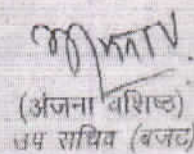 (अंजना वशिष्ठ)
उप सचिव (बजट)